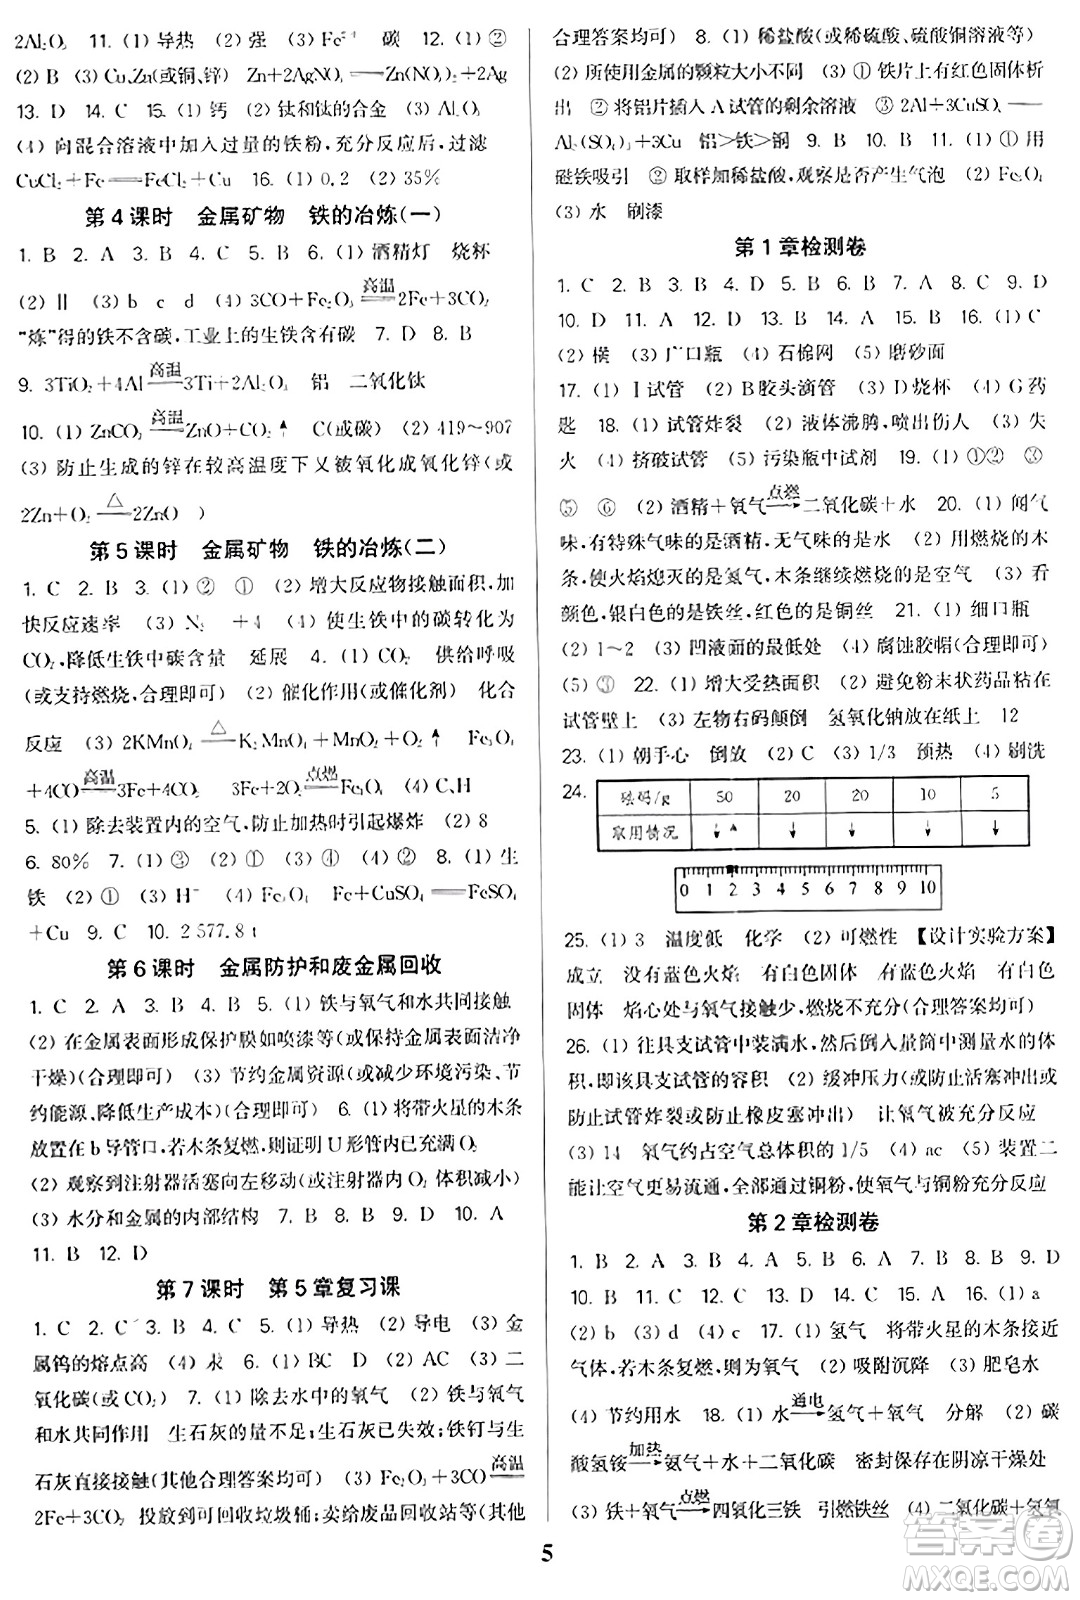 2Al₂O₃ 11. (1) 导热 (2) 强 (3) Fe²⁺ 碳 12. (1) ②
(2) B (3) Cu、Zn(或铜、锌) Zn+2AgNO₃══Zn(NO₃)₂+2Ag
13. D 14. C 15. (1) 钙 (2) 钛和钛的合金 (3) Al₂O₃
(4) 向混合溶液中加入过量的铁粉,充分反应,过滤
CuCl₂+Fe══FeCl₂+Cu 16. (1) 0.2 (2) 35%
第4课时 金属矿物 铁的冶炼(一)
1. B 2. A 3. B 4. C 5. B 6. (1) 酒精灯 烧杯
(2) Ⅱ (3) b c d (4) 3CO+Fe₂O₃ 高温══ 2Fe+3CO₂
“炼”得的铁不含碳,工业上的生铁含有碳 7. D 8. B
9. 3TiO₂+4Al 高温══ 3Ti+2Al₂O₃ 铝 二氧化钛
10. (1) ZnCO₃ 高温══ ZnO+CO₂↑ C(或碳) (2) 419~907
(3) 防止生成的锌在较高温度下又被氧化成氧化锌(或
2Zn+O₂ △══ 2ZnO )
第5课时 金属矿物 铁的冶炼(二)
1. C 2. B 3. (1) ② ① (2) 增大反应物接触面积,加
快反应速率 (3) N₂ +4 (4) 使生铁中的碳转化为
CO₂,降低生铁中碳含量 延展 4. (1) CO₂ 供给呼吸
(或支持燃烧,合理即可) (2) 催化作用(或催化剂) 化合
反应 (3) 2KMnO₄ △══ K₂MnO₄+MnO₂+O₂↑ Fe₃O₄
+4CO 高温══ 3Fe+4CO₂ 点燃 (4) C、H
5. (1) 除去装置内的空气,防止加热时引起爆炸 (2) 8
6. 80% 7. (1) ③ (2) ① (3) ④ (4) ② 8. (1) 生
铁 (2) ① (3) H⁺ Fe₂O₃ Fe+CuSO₄══FeSO₄
+Cu 9. C 10. 2 577.8 t
第6课时 金属防护和废金属回收
1. B 2. D 3. C 4. D 5. (1) 铁与氧气和水共同接触
(2) 在金属表面形成保护膜如喷漆(或保持金属表面洁净
干燥)(合理即可) (3) 节约金属资源(或减少环境污染、节
约能源、降低生产成本)(合理即可) 6. (1) 将带火星的木条
放置在 b 导管口,若木条复燃,则证明 U 形管内已充满 O₂
(2) 观察到注射器活塞向左移动(或注射器内 O₂ 体积减小)
(3) 水分和金属的内部结构 7. B 8. B 9. D 10. A
11. B 12. D
第7课时 第5章复习课
1. C 2. C 3. B 4. C 5. (1) 导热 (2) 导电 (3) 金
属钨的熔点高 (4) 汞 6. (1) BC (2) AC (3) 二
氧化碳(或 CO₂) 7. (1) 除去水中的氧气 (2) 铁与氧气
和水共同作用 生石灰的量不足;生石灰已失效;铁钉与生
石灰直接接触(其他合理答案均可) (3) Fe₂O₃+3CO 高温══
2Fe+3CO₂ 投放到可回收垃圾桶;卖给废品回收站等(其他
合理答案均可) 8. (1) 稀盐酸(或稀硫酸、硫酸铜溶液等)
(2) 所使用金属的颗粒大小不同 (3) ① 铁片上有红色固体析
出 ② 将铝片插入 A 试管的剩余溶液 ③ 2Al+3CuSO₄══
Al₂(SO₄)₃+3Cu 铝>铁>铜 9. B 10. B 11. (1) ① 用
磁铁吸引 ② 取样加稀盐酸,观察是否产生气泡 (2) Fe₃O₄
(3) 水 刷漆
第1章检测卷
1. C 2. D 3. B 4. D 5. B 6. B 7. A 8. C 9. D
10. D 11. A 12. D 13. D 14. B 15. B 16. (1) 末
(2) 横 (3) 广口瓶 (4) 石棉网 (5) 磨砂面
17. (1) I 试管 (2) B 胶头滴管 (3) D 烧杯 (4) G 药
匙 18. (1) 试管炸裂 (2) 液体沸腾,喷出伤人 (3) 失
火 (4) 挤破试管 (5) 污染瓶中试剂 19. (1) ①② ③
⑤ ⑥ (2) 酒精+氧气 点燃→ 二氧化碳+水 20. (1) 闻气
味,有特殊气味的是酒精,无气味的是水 (2) 用燃烧的木
条,使火焰熄灭的是氮气,木条继续燃烧的是空气 (3) 看
颜色,银白色的是铁丝,红色的是铜丝 21. (1) 细口瓶
(2) 1~2 (3) 凹液面的最低处 (4) 腐蚀胶帽(合理即可)
(5) ③ 22. (1) 增大受热面积 (2) 避免粉末状药品粘在
试管壁上 (3) 左物右码颠倒 氢氧化钠放在纸上 12
23. (1) 朝手心 倒放 (2) C (3) 1/3 预热 (4) 刷洗
24. 砝码/g 50 20 20 10 5
取用情况 ↓▲ ↓ ↓ ↓ ↓
0 1 2 3 4 5 6 7 8 9 10
25. (1) 3 温度低 化学 (2) 可燃性 【设计实验方案】
成立 没有蓝色火焰 有白色固体 有蓝色火焰 有白色
固体 焰心处与氧气接触少,燃烧不充分(合理答案均可)
26. (1) 往具支试管中装满水,然后倒入量筒中测量水的体
积,即该具支试管的容积 (2) 缓冲压力(或防止活塞冲出或
防止试管炸裂或防止橡皮塞冲出) 让氧气被充分反应
(3) 14 氧气约占空气总体积的 1/5 (4) ac (5) 装置二
能让空气更易流通,全部通过铜粉,使氧气与铜粉充分反应
第2章检测卷
1. B 2. B 3. D 4. A 5. A 6. C 7. B 8. B 9. D
10. B 11. D 12. B 13. C 14. D 15. C 16. (1) a
(2) b (3) d (4) c 17. (1) 氢气 将带火星的木条接近
气体,若木条复燃,则为氧气 (2) 吸附沉降 (3) 肥皂水
(4) 节约用水 18. (1) 水 通电→ 氢气+氧气 分解 (2) 碳
酸氢铵 加热→ 氨气+水+二氧化碳 密封保存在阴凉干燥处
(3) 铁+氧气 点燃→ 四氧化三铁 引燃铁丝 (4) 二氧化碳+氢氧
5
答案圈
MXQE.COM